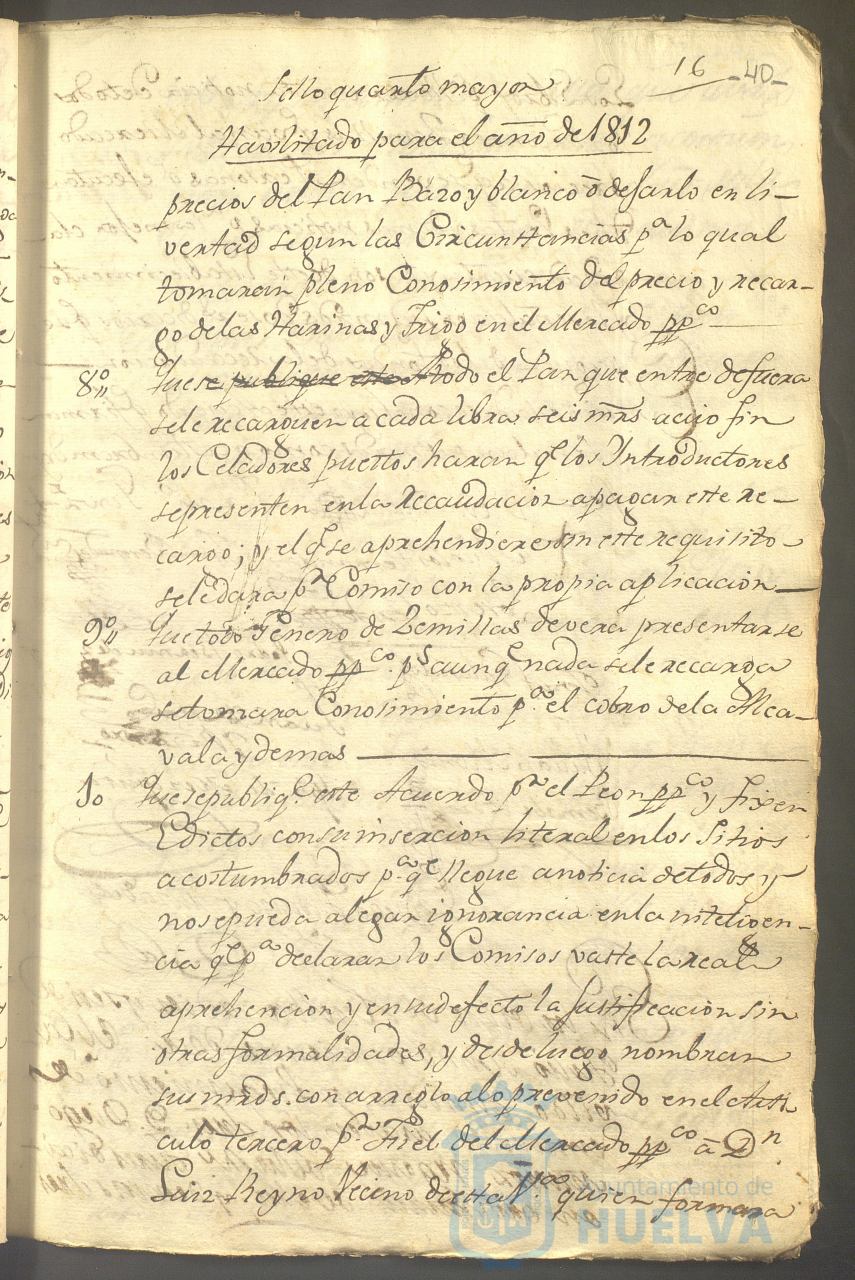 16 -40-
Sello quarto mayor
Havilitado para el año de 1812
precios del Pan Bazo y blanco ō desarlo en li-
vertad segun las Circunstancias pª lo qual
tomaran pleno Conosimiento del precio y recar-
go de las Harinas y Trigo en el Mercado ppᶜᵒ
8º Que se publique este A todo el Pan que entre de fuera
sele recarguen a cada libra seis mrs acuio fin
los Celadores puestos haran qᵉ los Introductores
sepresenten enla Recaudacion apagar este re-
cargo; y el qᵉ se aprehendiere sin este requisito
sele dara pʳ Comiso con la propia aplicacion
9º Que todo Genero de Zemillas devera presentarse
al Mercado ppᶜᵒ pˢ aunqᵉ nada sele recarga
setomara Conosimiento pª el cobro dela Alca-
vala y demas
10 Que sepubliqᵉ este Acuerdo pʳ el Peon ppᶜᵒ y fixen
Edictos consu insercion literal enlos Sitios
acostumbrados pª qᵉ llegue anoticia detodos y
nosepueda alegar ignorancia enla inteligen-
cia qᵉ pª declarar los Comisos vaste la real
aprehencion y ensudefecto la Justificacion sin
otras formalidades, y desde luego nombran
sus mrds. con arreglo alo prevenido en el Arti
culo tercero pʳ Fiel del Mercado ppᶜᵒ ā Dⁿ
Luiz Reyno Vecino de esta Vª quien formara
Ayuntamiento de
HUELVA